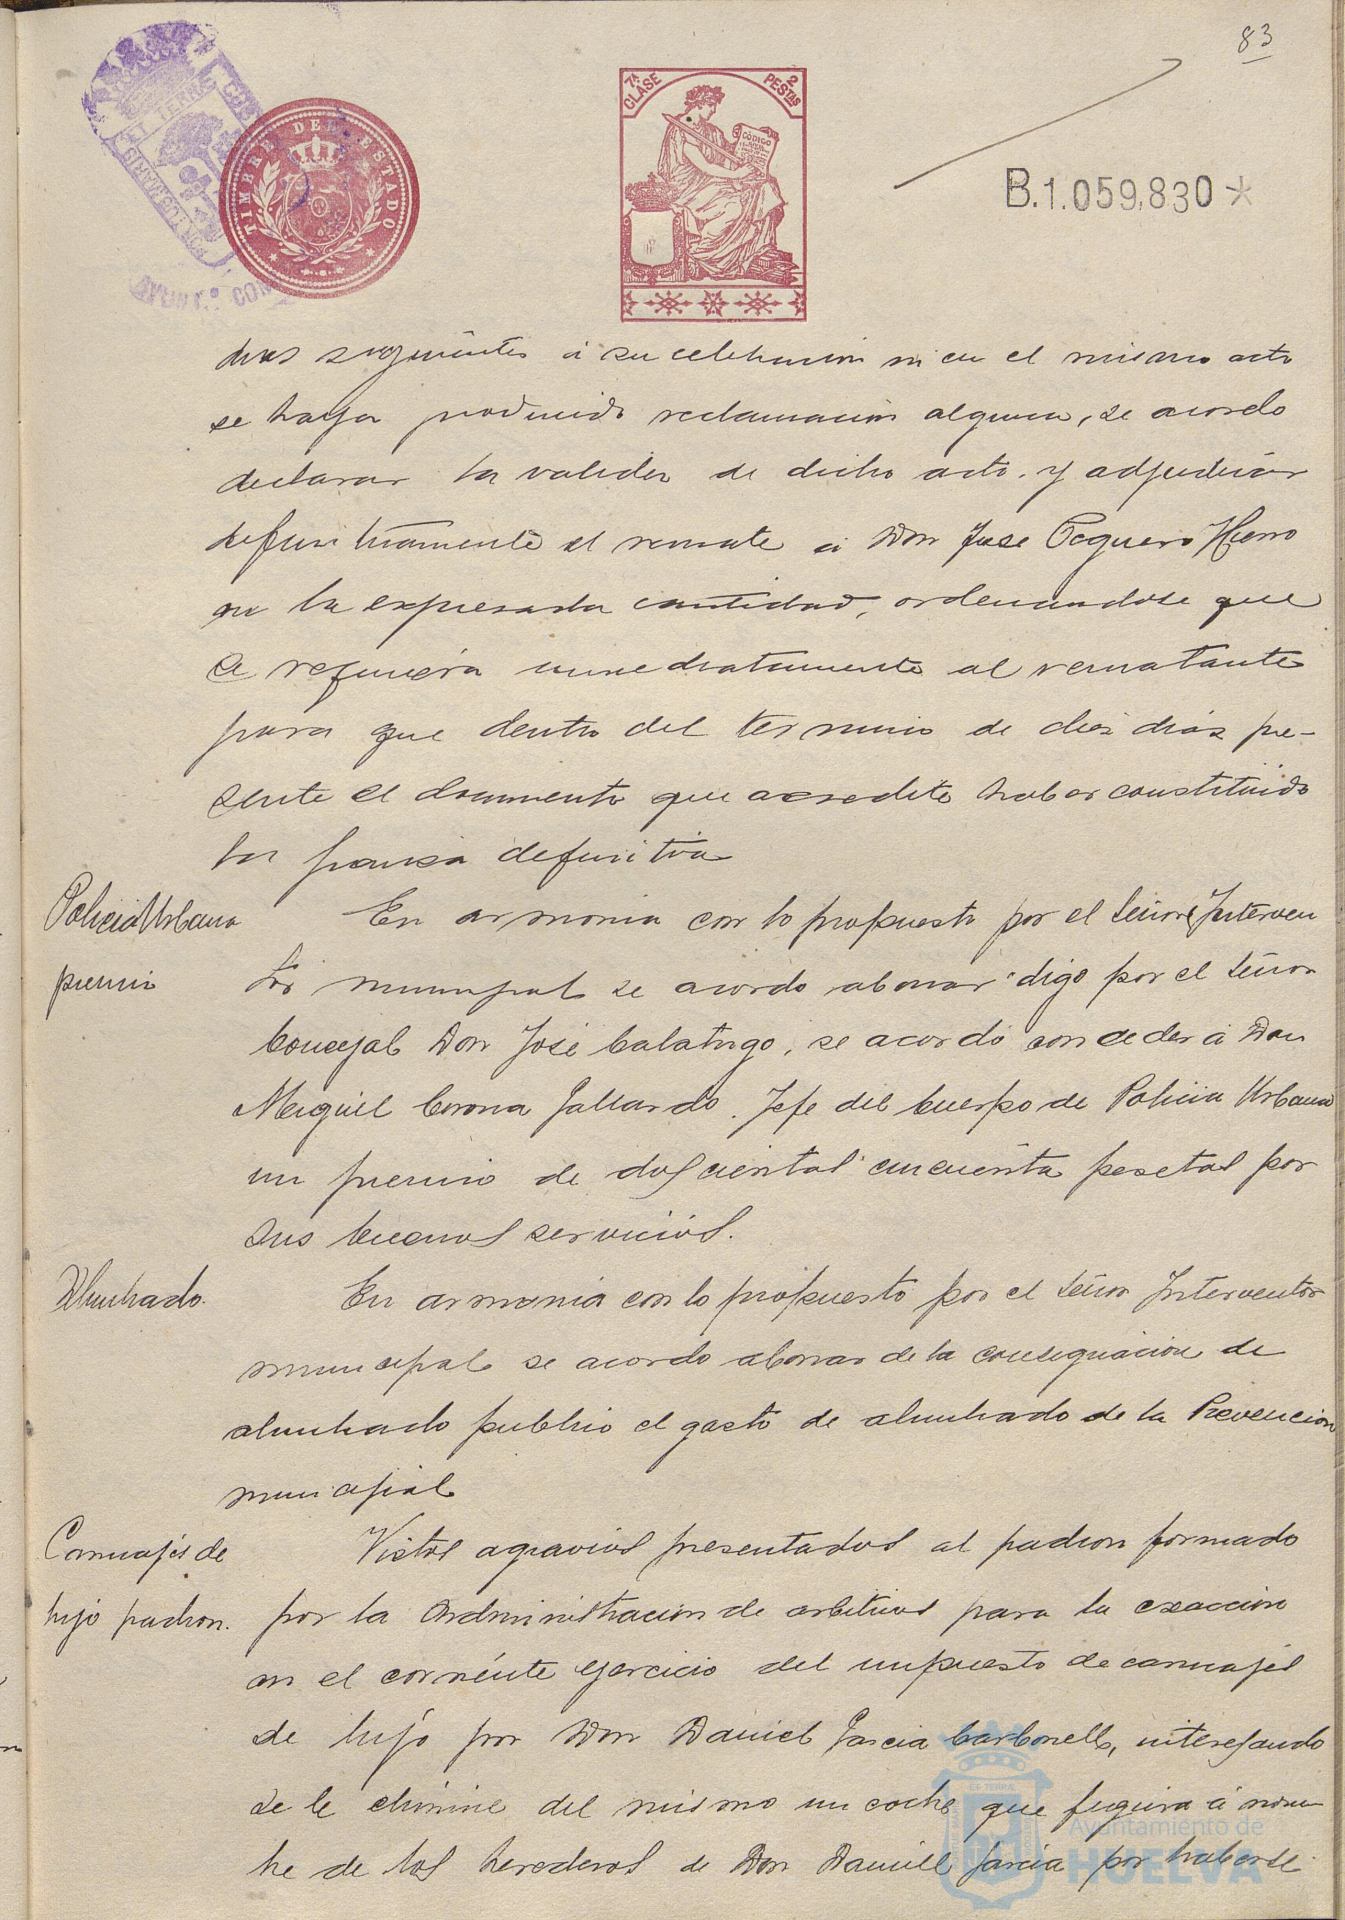 83
7ª CLASE 2 PESTAS
CÓDIGO
TIMBRE DEL ESTADO
B.1.059,830*
dias siguientes á su celebración ni en el mismo acto
se haya producido reclamación alguna, se acordo
declarar la validez de dicho acto y adjudicar
definitivamente el remate á Don Jose Poguero Hierro
en la expresada cantidad, ordenandose que
se requiera inmediatamente al rematante
para que dentro del termino de diez dias pre-
sente el documento que acredite haber constituido
la fianza definitiva
Policia Urbana
premio
En armonia con lo propuesto por el Señor Interven
tor municipal se acordo abonar digo por el Señor
Concejal Don José Calatrigo, se acordó conceder á Don
Miguel Corona Gallardo, Jefe del Cuerpo de Policia Urbana
un premio de doscientas cincuenta pesetas por
sus buenos servicios.
Alumbrado.
En armonia con lo propuesto por el Señor Interventor
municipal se acordo abonar de la consignacion de
alumbrado publico el gasto de alumbrado de la Prevencion
municipal
Carruajes de
lujo padron.
Vistos agravios presentados al padron formado
por la Administracion de arbitrios para la exaccion
en el corriente ejercicio del impuesto de carruajes
de lujo por Don Daniel Garcia Carbonell, interesando
se le elimine del mismo un coche que figura á nom
bre de los herederos de Don Daniel Garcia por haberse
Ayuntamiento de
HUELVA